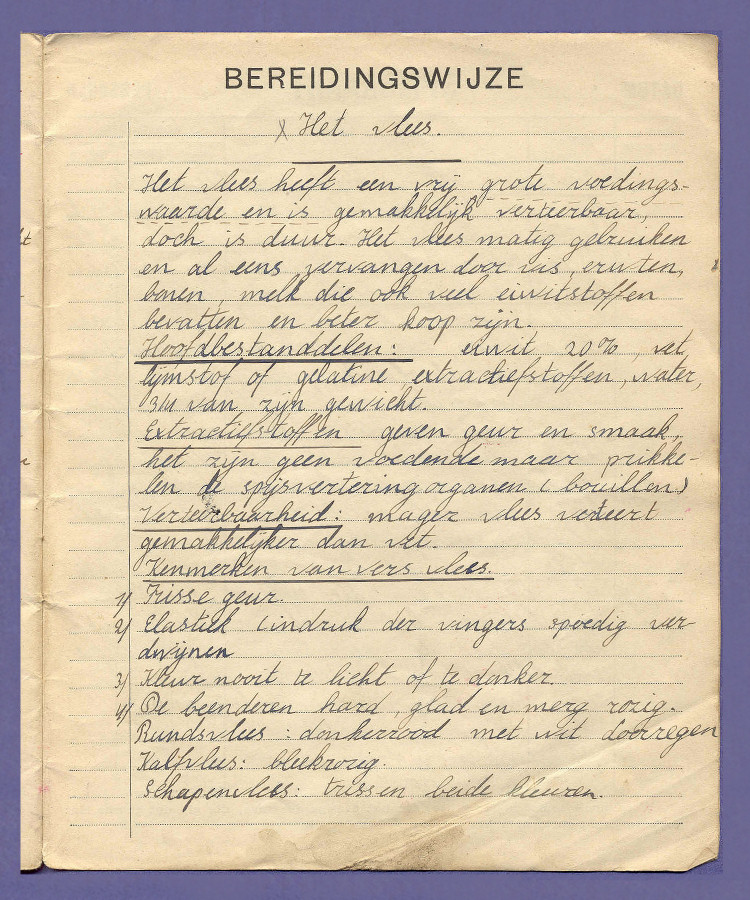 BEREIDINGSWIJZE
x Het vlees.
Het vlees heeft een vrij grote voedings-
waarde en is gemakkelijk verteerbaar,
doch is duur. Het vlees matig gebruiken
en al eens vervangen door vis, erwten,
bonen, melk die ook veel eiwitstoffen
bevatten en beter koop zijn.
Hoofdbestanddelen: eiwit 20%, vet
lijmstof of gelatine, extractiefstoffen, water,
3/4 van zijn gewicht.
Extractiefstoffen geven geur en smaak,
het zijn geen voedende maar prikke-
len de spijsverteringorganen (bouillon)
Verteerbaarheid: mager vlees verteert
gemakkelijker dan vet.
Kenmerken van vers vlees.
1/ Frisse geur.
2/ Elastiek (indruk der vingers spoedig ver-
dwijnen
3/ Kleur nooit te licht of te donker.
4/ De beenderen hard, glad en merg rozig.
Rundsvlees: donkerrood met wit doorregen
Kalfvlees: bleekrozig.
Schapenvlees: tussen beide kleuren.